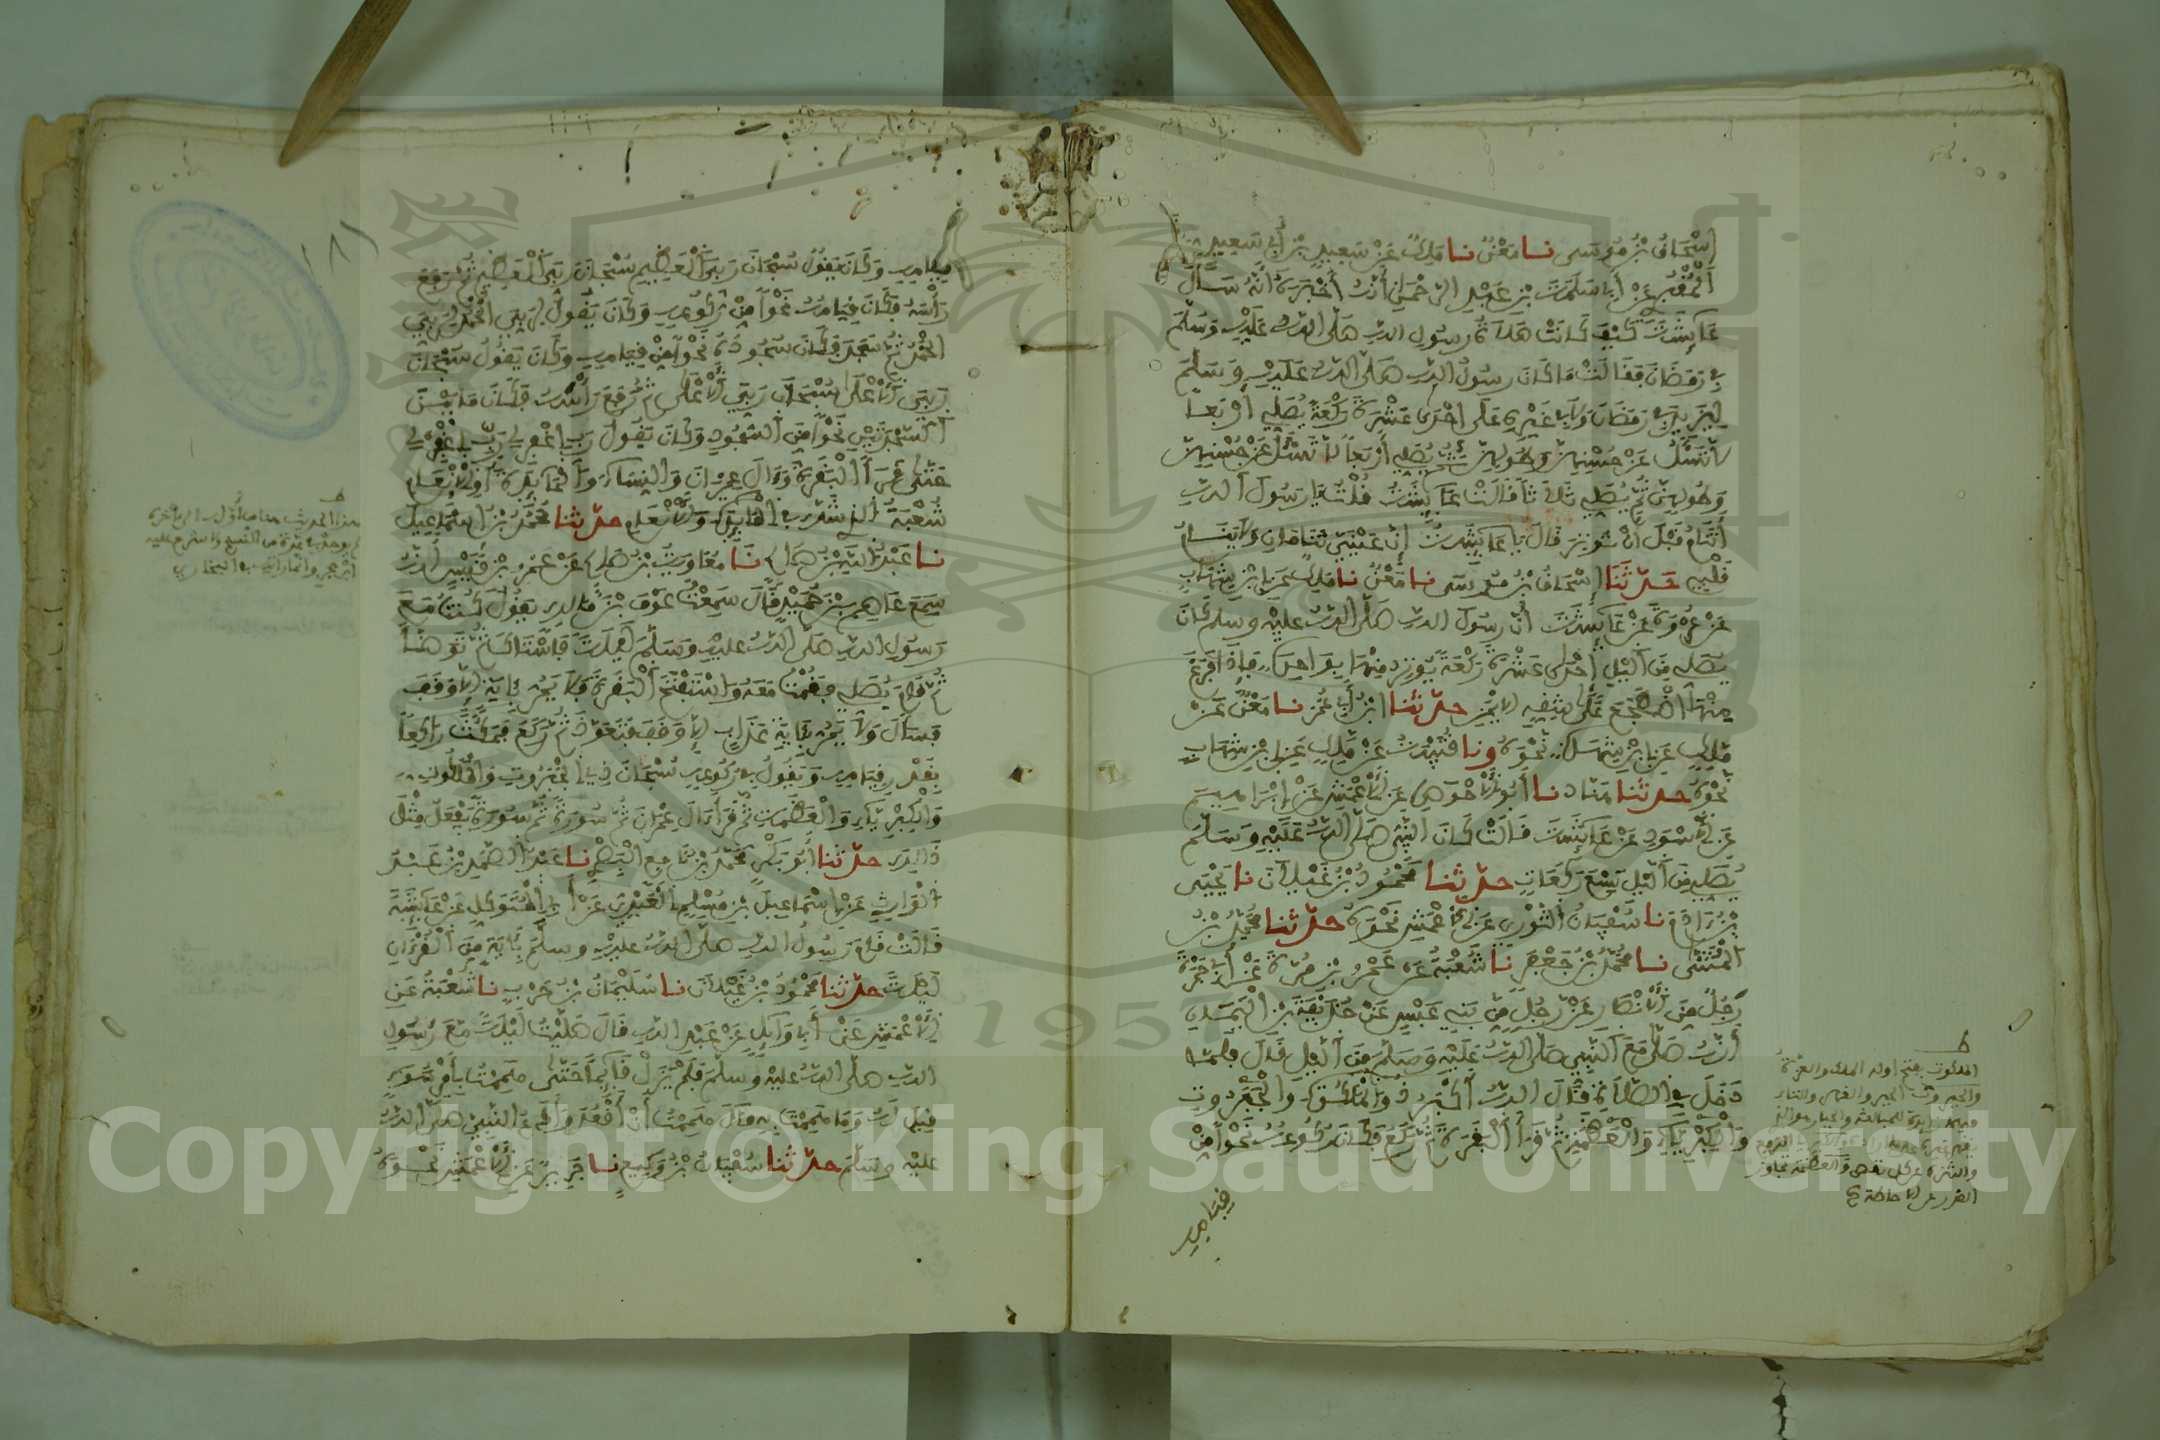 إسْحَاقُ بْنُ مُوسَى نا مَعْنٌ نا مَلِكٌ عَنْ سَعِيدِ بْنِ أَبِي سَعِيدٍ
الْمَقْبُرِيِّ عَنْ أَبِي سَلَمَةَ بْنِ عَبْدِ الرَّحْمَنِ أَنَّهُ أَخْبَرَهُ أَنَّهُ سَأَلَ
عَائِشَةَ كَيْفَ كَانَتْ صَلَاةُ رسُولِ اللهِ صَلَّى اللهُ عَلَيْهِ وَسَلَّمَ
فِي رَمَضَانَ فَقَالَتْ مَا كَانَ رسُولُ اللهِ صَلَّى اللهُ عَلَيْهِ وَسَلَّمَ
لِيَزِيدَ فِي رَمَضَانَ وَلَا فِي غَيْرِهِ عَلَى إِحْدَى عَشْرَةَ رَكْعَةً يُصَلِّي أَرْبَعاً
لَا تَسْئَلْ عَنْ حُسْنِهِنَّ وَطُولِهِنَّ ثُمَّ يُصَلِّي أَرْبَعاً لَا تَسْئَلْ عَنْ حُسْنِهِنَّ
وَطُولِهِنَّ ثُمَّ يُصَلِّي ثَلَاثاً قَالَتْ عَائِشَةُ قُلْتُ يَا رَسُولَ اللهِ
أَتَنَامُ قَبْلَ أَنْ تُوتِرَ قَالَ يَا عَائِشَةُ إِنَّ عَيْنَيَّ تَنَامَانِ وَلَا يَنَامُ
قَلْبِي حَدَّثَنَا إِسْحَاقُ بْنُ مُوسَى نا مَعْنٌ نا مَلِكٌ عَنِ ابْنِ شِهَابٍ
عَنْ عُرْوَةَ عَنْ عَائِشَةَ أَنَّ رسُولَ اللهِ صَلَّى اللهُ عليْهِ وسلم كَانَ
يُصَلِّي مِنَ اللَّيْلِ إِحْدَى عَشْرَةَ رَكْعَةً يُوتِرُ مِنْهَا بِوَاحِدَةٍ فَإِذَا فَرَغَ
مِنْهَا اضْطَجَعَ عَلَى شِقِّهِ الْأَيْمَنِ حدّثنا ابْنُ أَبِي عُمَرَ نا مَعْنٌ عَنْ
مَلِكٍ عَنِ ابْنِ شِهَابٍ نَحْوَهُ ونا قُتَيْبَةُ عَنْ مَلِكٍ عَنِ ابْنِ شِهَابٍ
نَحْوَهُ حدثنا هَنَّاد نا أَبُو الْأَحْوَصِ عَنِ الْأَعْمَشِ عَنْ إِبْرَاهِيمَ
عَنِ الْأَسْوَدِ عَنْ عَائِشَةَ قَالَتْ كَانَ النَّبِيُّ صَلَّى اللهُ عَلَيْهِ وَسَلَّمَ
يُصَلِّي مِنَ اللَّيْلِ تِسْعَ رَكَعَاتٍ حدّثنا مَحْمُودُ بْنُ غَيْلَانَ نا يَحْيَى
بْنُ آدَمَ نا سُفْيَانُ الثَّوْرِي عَنِ الْأَعْمَشِ نَحْوَهُ حدّثنا مُحَمَّدُ بْنُ
الْمُثَنَّى نا مُحَمَّدُ بْنُ جَعْفَرٍ نا شُعْبَةُ عَن عَمْرِو بْنِ مُرَّةَ عَنْ أَبِي حَمْزَةَ
رَجُلٌ مِنَ الْأَنْصَارِ عَنْ رَجُلٍ مِنْ بَنِي عَبْسٍ عَنْ حُذَيْفَةَ بْنِ الْيَمَانِ
أَنَّهُ صَلَّى مَعَ النَّبِيِّ صَلَّى اللهُ عَلَيْهِ وَسَلَّمَ مِنَ اللَّيْلِ قَالَ فَلَمَّا
دَخَلَ فِي الصَّلَاةِ قَالَ اللهُ أَكْبَرُ ذُو الْمَلَكُوتِ وَالْجَبَرُوتِ
وَالْكِبْرِيَاءِ وَالْعَظَمَةِ ثُمَّ قَرَأَ الْبَقَرَةَ ثُمَّ رَكَعَ فَكَانَ رُكُوعُهُ نَحْواً مِنْ
قيامه
ط
الملكوت بفتح أوله الملك والعزة
والجبروت الجبر والقهر والتاء
والتنزه عن كل نقص والعظمة تجاوز
القدر عن الإحاطة
قِيَامِهِ وَكَانَ يَقُولُ سُبْحَانَ رَبِّيَ الْعَظِيمِ سُبْحَانَ رَبِّيَ الْعَظِيمِ ثُمَّ رَفَعَ
رَأْسَهُ فَكَانَ قِيَامُهُ نَحْواً مِنْ رُكُوعِهِ وَكَانَ يَقُولُ لِرَبِّيَ الْحَمْدُ لِرَبِّيَ
الْحَمْدُ ثُمَّ سَجَدَ فَكَانَ سُجُودُهُ نَحْواً مِنْ قِيَامِهِ وَكَانَ يَقُولُ سُبْحَانَ
رَبِّيَ الْأَعْلَى سُبْحَانَ رَبِّيَ الْأَعْلَى ثُمَّ رَفَعَ رَأْسَهُ فَكَانَ مَا بَيْنَ
السَّجْدَتَيْنِ نَحْواً مِنَ السُّجُودِ وَكَانَ يَقُولُ رَبِّ اغْفِرْ لِي رَبِّ اغْفِرْ لِي
حَتَّى قَرَأَ الْبَقَرَةَ وَآلَ عِمْرَانَ وَالنِّسَاءَ وَالْمَائِدَةَ أَوِ الْأَنْعَامِ
شُعْبَةُ الَّذِي شَكَّ فِي الْمَائِدَةِ وَالْأَنْعَامِ حدّثنا مُحَمَّدُ بْنُ إِسْمَاعِيلَ
نا عَبْدُ اللهِ بْنُ صَالِحٍ نا مُعَاوِيَةُ بْنُ صَالِحٍ عَنْ عَمْرِو بْنِ قَيْسٍ أَنَّهُ
سَمِعَ عَاصِمَ بْنَ حُمَيْدٍ قَالَ سَمِعْتُ عَوْفَ بْنَ مَالِكٍ يَقُولُ كُنْتُ مَعَ
رَسُولِ اللهِ صَلَّى اللهُ عليْهِ وَسَلَّمَ لَيْلَةً فَاسْتَاكَ ثُمَّ تَوَضَّأَ
ثُمَّ قَامَ يُصَلِّي فَقُمْتُ مَعَهُ وَاسْتَفْتَحَ الْبَقَرَةَ فَلَا يَمُرُّ بِآيَةِ إِلَّا وَقَفَ
فَسَأَلَ وَلَا يَمُرُّ بِآيَةِ عَذَابٍ إِلَّا وَقَفَ فَتَعَوَّذَ ثُمَّ رَكَعَ فَمَكَثَ رَاكِعاً
بِقَدْرِ قِيَامِهِ وَيَقُولُ فِي رُكُوعِهِ سُبْحَانَ ذِي الْجَبَرُوتِ وَالْمَلَكُوتِ
وَالْكِبْرِيَاءِ وَالْعَظَمَةِ ثُمَّ قَرَأَ آلَ عِمْرَانَ ثُمَّ سُورَةً ثُمَّ سُورَةً يَفْعَلُ مِثْلَ
ذَالِكَ حدّثنا أَبُو بَكْرٍ مُحَمَّدُ بْنُ نَافِعٍ الْبَصْرِيُّ نا عَبْدُ الصَّمَدِ بْنُ عَبْدِ
الْوَارِثِ عَنْ إِسْمَاعِيلَ بْنِ مُسْلِمٍ الْعَبْدِيِّ عَنْ أَبِي الْمُتَوَكِّلِ عَنْ عَائِشَةَ
قَالَتْ قَامَ رَسُولُ اللهِ صَلَّى اللهُ عليْهِ وسلَّمَ بِآيَةٍ مِنَ الْقُرْآنِ
لَيْلَةً حدّثنا مَحْمُودُ بْنُ غَيْلَانَ نا سُلَيْمَانُ بْنُ حَرْبٍ نا شُعْبَةُ عَنِ
الْأَعْمَشِ عَنْ أَبِي وَائِلٍ عَنْ عَبْدِ اللهِ قَالَ صَلَّيْتُ لَيْلَةً مَعَ رَسُولِ
اللهِ صَلَّى اللهُ عليْهِ وسلَّمَ فَلَمْ يَزَلْ قَائِماً حَتَّى هَمَمْتُ بِأَمْرِ سَوْءٍ
قِيلَ لَهُ وَمَا هَمَمْتَ بِهِ قَالَ هَمَمْتُ أَنْ أَقْعُدَ وَأَدَعَ النَّبِيَّ صَلَّى اللهُ
عليْهِ وسَلَّمَ حدّثنا سُفْيَانُ بْنُ وَكِيعٍ نا جَرِيرٌ عَنِ الْأَعْمَشِ نَحْوَهُ
١٨١
ط
هذا الحديث من أوله إلى آخره
ابن حجر
Copyright © King Saud University
1957